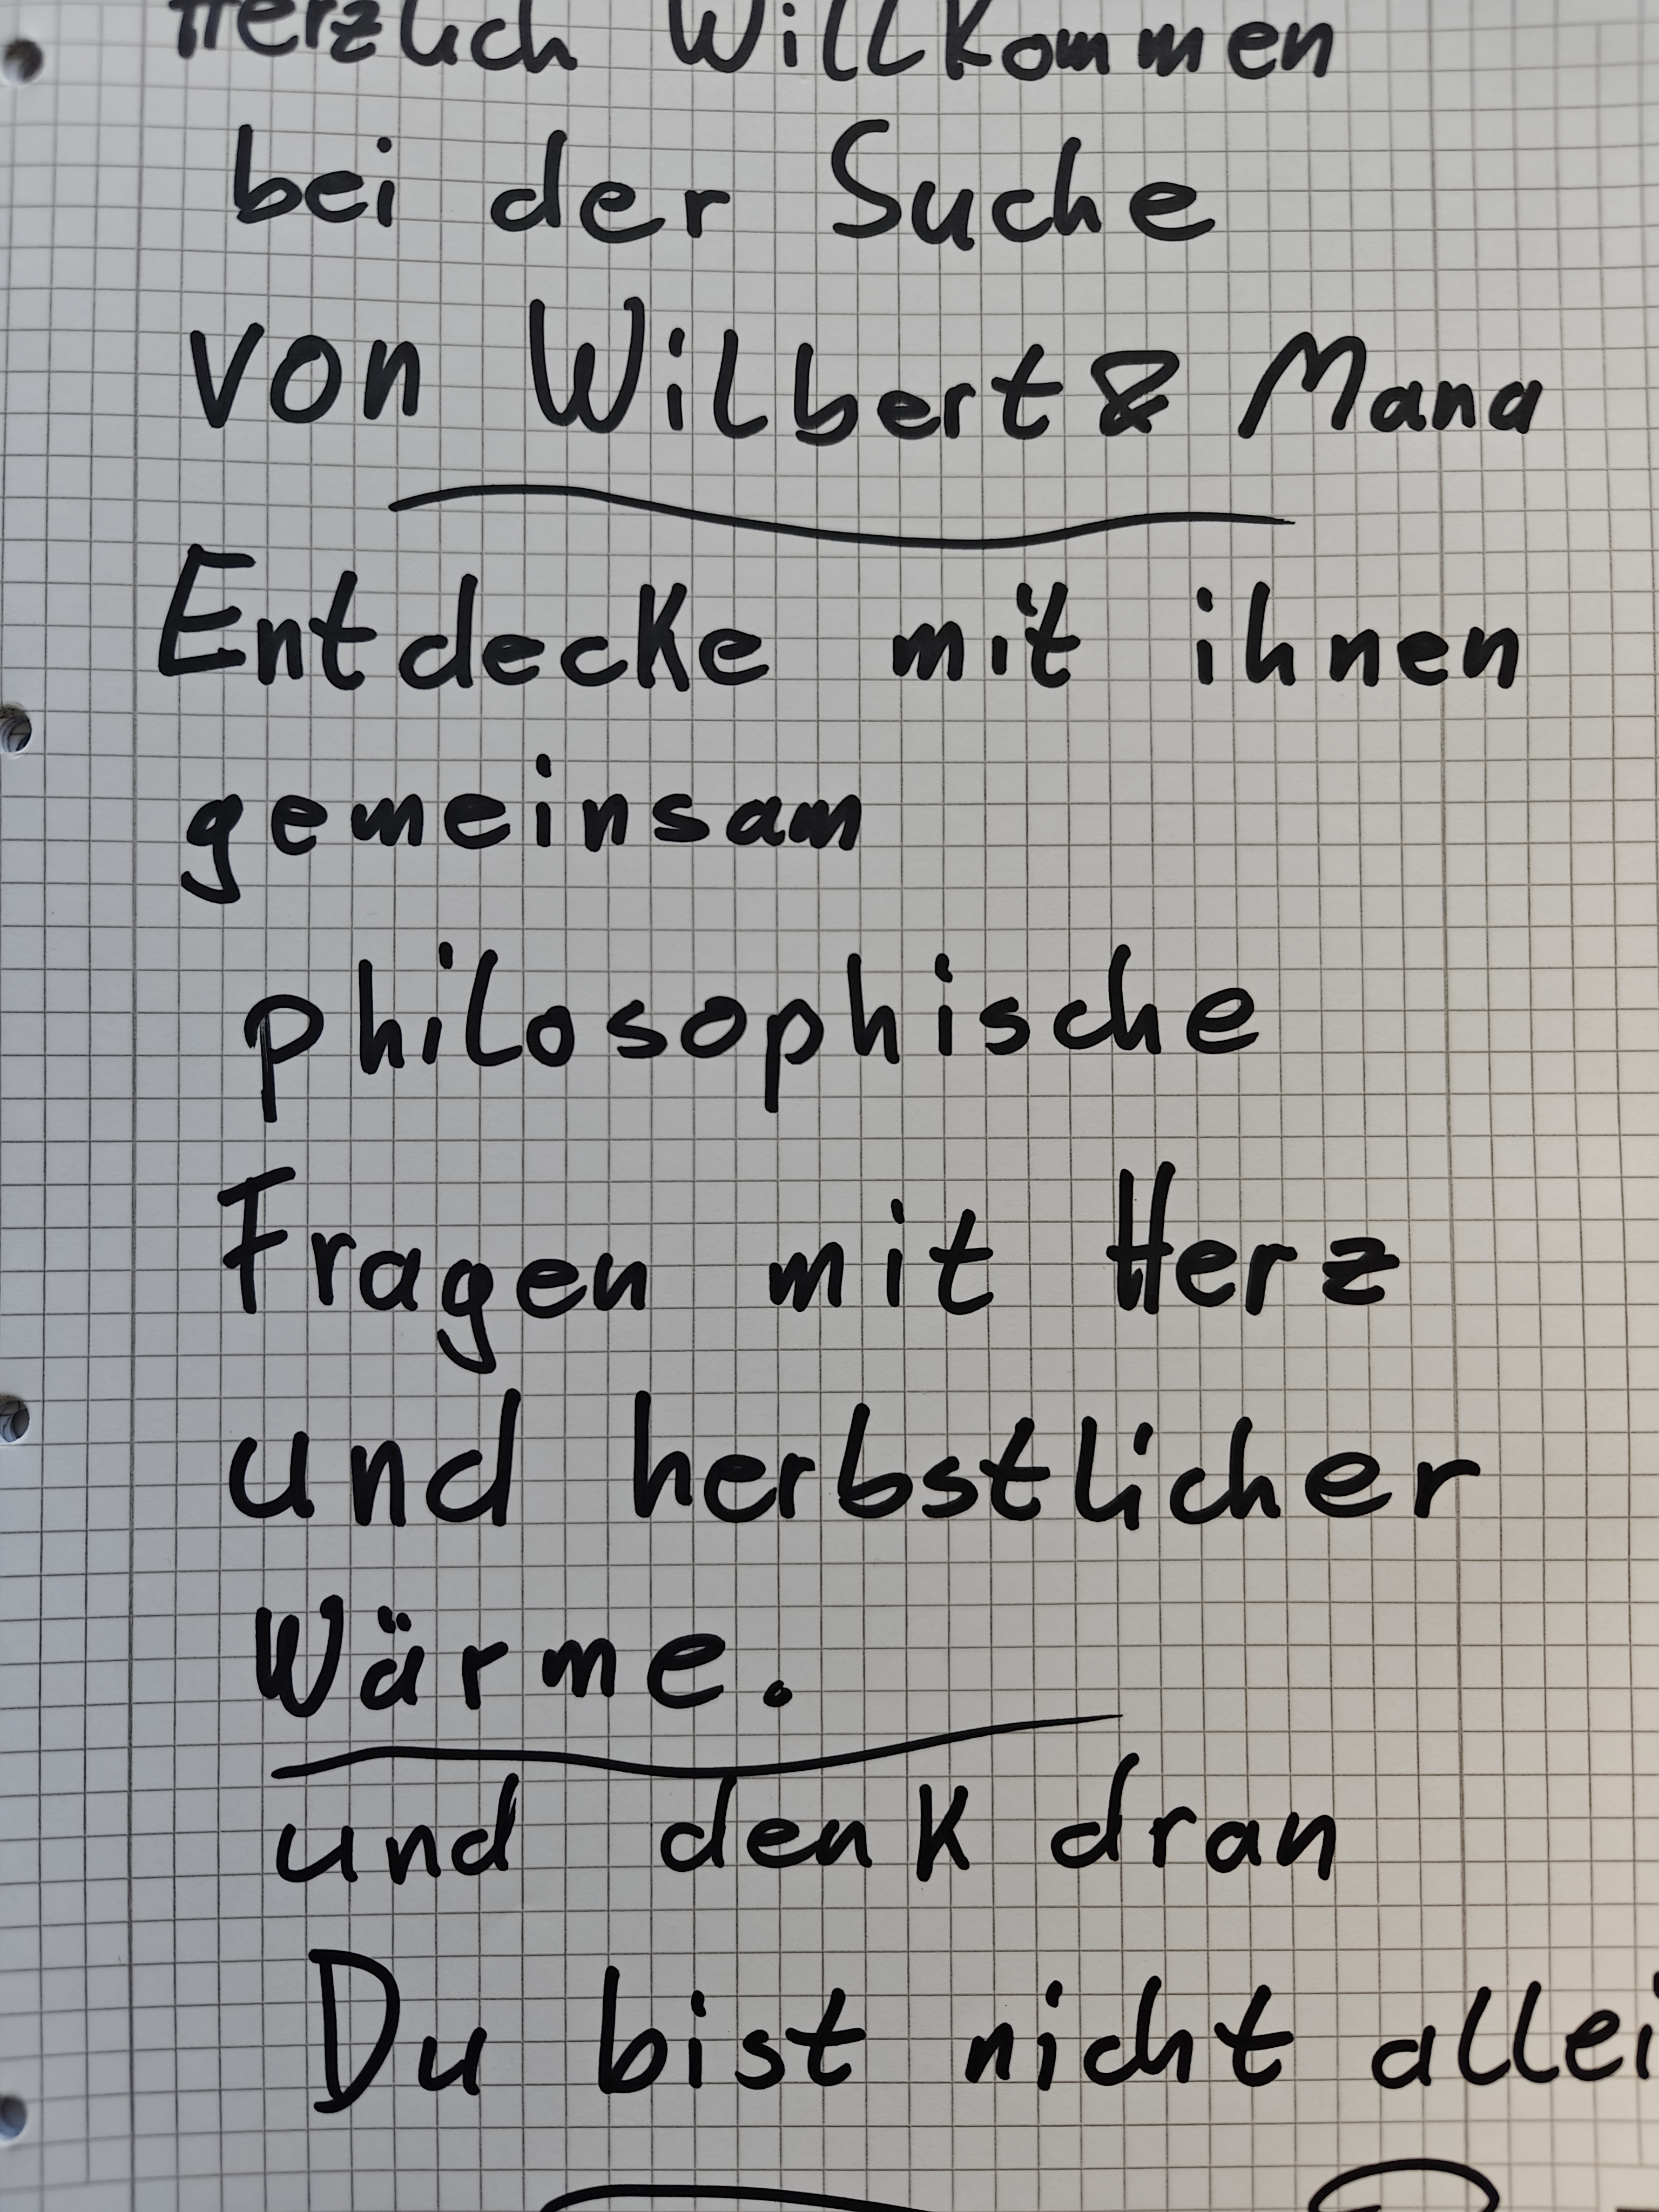 Herzlich Willkommen
bei der Suche
von Wilbert & Mana
Entdecke mit ihnen
gemeinsam
philosophische
Fragen mit Herz
und herbstlicher
Wärme.
und denk dran
Du bist nicht allei